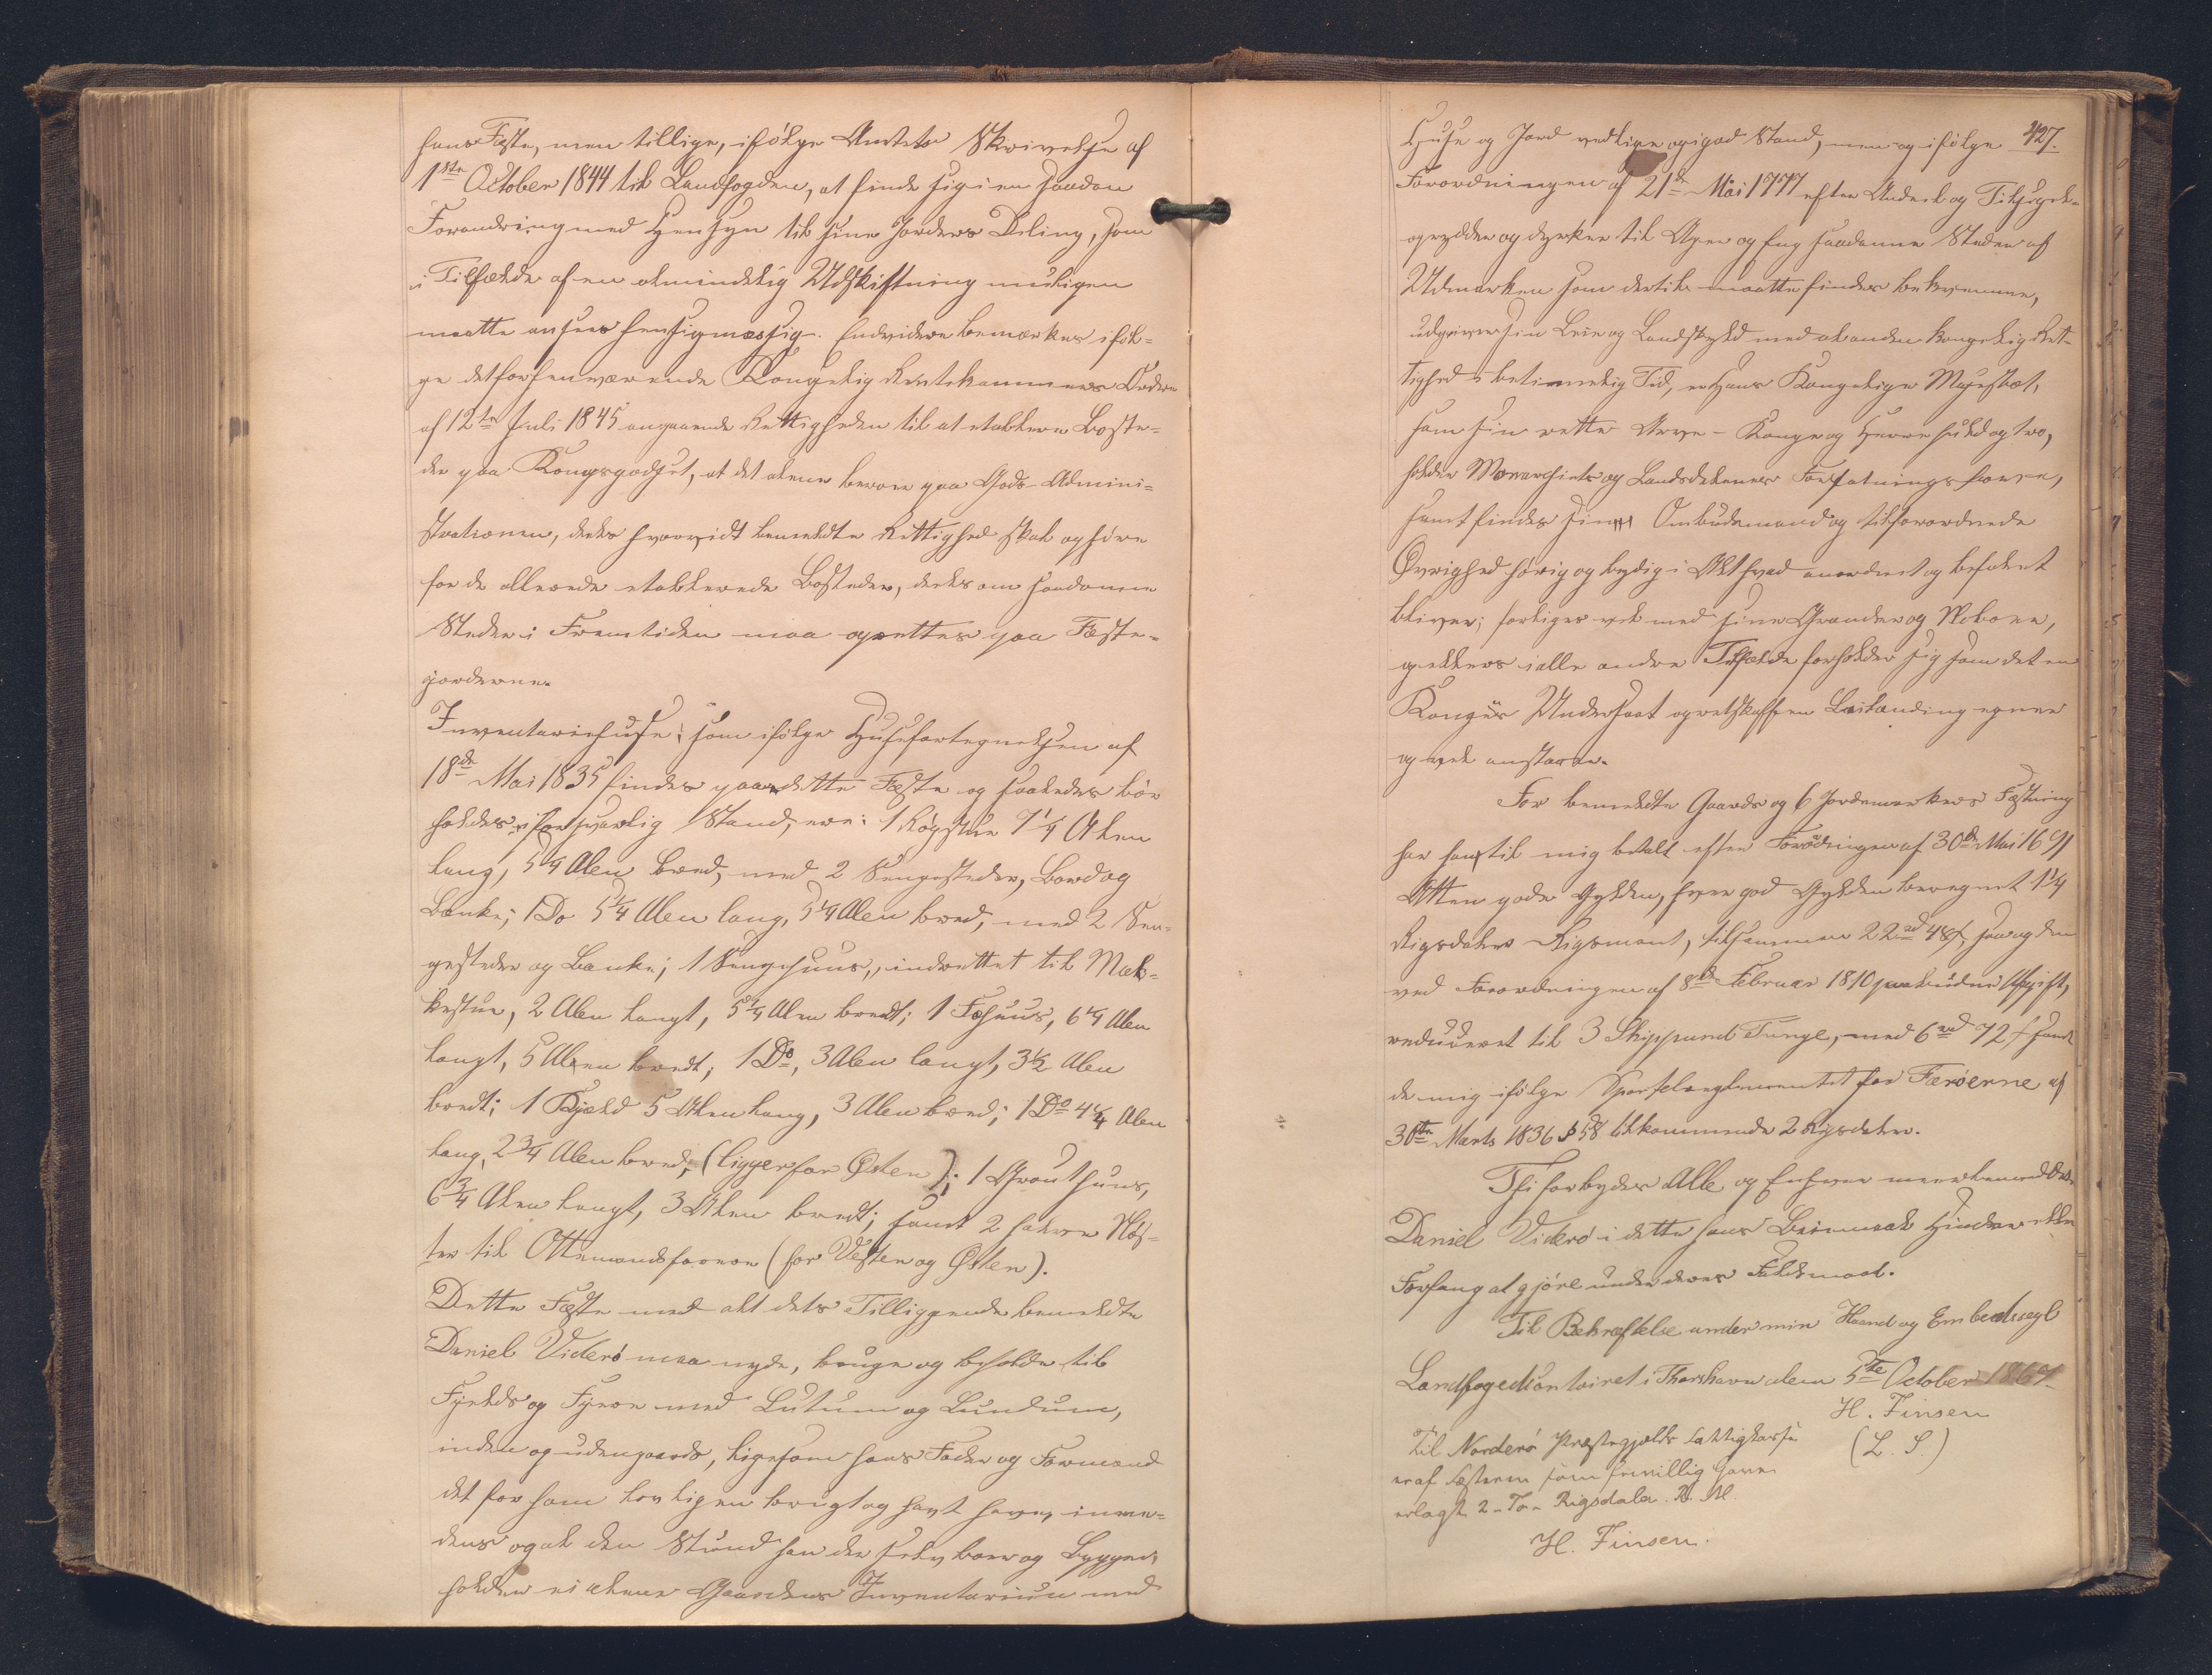 hans Fæste, men tillige, ifølge Amtets Skrivelse af
1ste October 1844 til Landfogden, at finde sig i en saadan
Forandring med Hensyn til sine Jorders Deling, som
i Tilfælde af en almindelig Udskiftning muligen
maatte ansees hensigtmæssig. Endvidere bemærkes iføl-
ge det forhenværende Kongelig Rentekammers Ordre
af 12te Juli 1845 angaaende Rettigheden til at etablere Boste-
der paa Kongsgodset, at det alene beroer paa Gods-Admini-
strationen, deels hvorvidt bemeldte Rettighed skal ophøre
for de allerede etablerede Bosteder, deels om saadanne
Steder i Fremtiden maa oprettes paa Fæste-
jorderne.
Inventariehuse: som ifølge Huusfortegnelsen af
18de Mai 1835 findes paa dette Fæste og saaledes bør
holdes i forsvarlig Stand, ere: 1 Røgstue 7¼ Alen
lang, 5¼ Alen bred, med 2 Sengesteder, Bord og
Bænke; 1 Do 5¼ Alen lang, 5¼ Alen bred, med 2 Sen-
gesteder og Bænke; 1 Sengehuus, indrettet til Mæl-
kestue, 2 Alen langt, 5¼ Alen bredt; 1 Fæhuus, 6¼ Alen
langt, 5 Alen bredt; 1 Do, 3 Alen langt, 3½ Alen
bredt; 1 Hjeld 5 Alen lang, 3 Alen bred; 1 Do 4¼ Alen
lang, 2¾ Alen bred, (ligger for Østen); 1 Grouthuus,
6¾ Alen langt, 3 Alen bredt; samt 2 halve Nøs-
ter til Ottemandsfarere (for Vesten og Østen).
Dette Fæste med alt dets Tilliggende bemeldte
Daniel Viderø maa nyde, bruge og beholde til
Fjelds og Fjære med Lutum og Lundum,
inden og udengaards, ligesom hans Fader og Formand
det for ham lovligen brugt og havt have, imme-
dens og al den Stund han der selv boer og bygger,
holder ei alene Gaardens Inventarium med
427.
Huse og Jord vedlige og i god Stand, men og ifølge
Forordningen af 21de Mai 1777 efter Anders og Tilsyn
oprydder og dyrker til Ager og Eng saadanne Steder af
Udmarken som dertil maatte findes bekvemme,
udgiver sin Leie og Landskyld med al anden kongelig Ret-
tighed i betimelig Tid, er Hans Kongelige Majestæt,
som sin rette Arve-Konge og Herre huld og tro,
holder Monarchiets og Landsdelenes Forfatningslove,
samt findes sin Ombudsmand og tilforordnede
Øvrighed hørig og lydig i Alt hvad anordnet og befalet
bliver; forliges vel med sine Grander og Naboer,
og ellers i alle andre Tilfælde forholder sig som det en
Konges Undersaat og retskaffen Leilænding egner
og vel anstaaer.
For bemeldte Gaards og 6 Jordemarkers Fæstning
har han til mig betalt efter Forordningen af 30de Mai 1691
Atten gode Gylden, hver god Gylden beregnet 1¼
Rigsdaler Rigsmønt, tilsammen 22rd 48ß, saa og den
ved Forordningen af 8de Februar 1810 paabudne Afgift,
reduceret til 3 Skippund Tunge, med 6rd 72ß samt
de mig ifølge Sportelreglementet for Færøerne af
30te Marts 1836 § 58 tilkommende 2 Rigsdaler.
Thi forbydes Alle og Enhver meerbemeldte
Daniel Viderø i dette hans Leiemaal Hinder eller
Forfang at gjøre under deres Faldsmaal.
Til Bekræftelse under min Haand og Embedssegl
Landfogedcontoiret i Thorshavn den 5te October 1867.
H. Finsen
(L. S.)
Til Norderø Præstegjælds Fattigkasse
er af Fæsteren som frivillig Gave
erlagt 2 - To - Rigsdaler R. M.
H. Finsen.